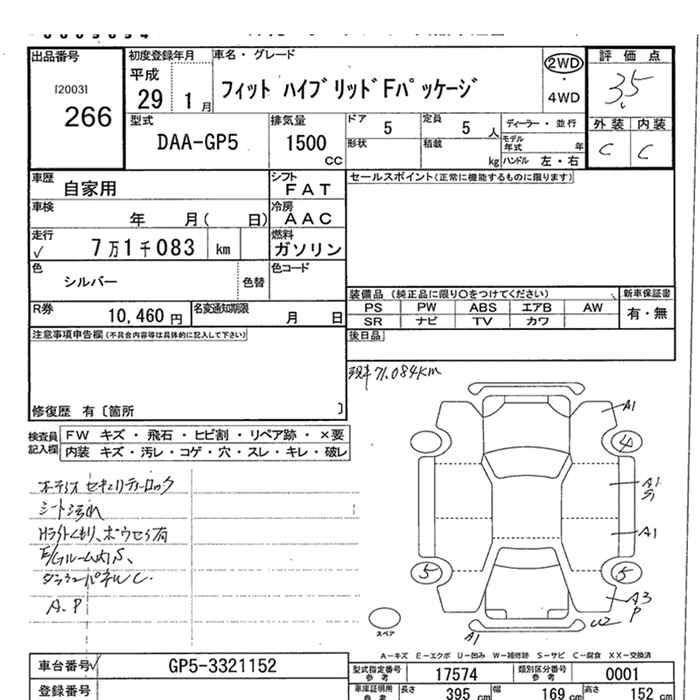 出品番号
[2003]
266
初度登録年月
平成
29 1月
車名・グレード
フィット ハイブリッドFパッケージ
2WD
・
4WD
評価点
3.5
外装 内装
C C
型式
DAA-GP5
排気量
1500
cc
ドア
5
定員
5 人
形状
積載
kg
ディーラー・並行
モデル年式 年
ハンドル 左・右
車歴
自家用
シフト
FAT
車検
年 月( 日)
冷房
AAC
走行
✓ 7万1千083 km
燃料
ガソリン
色
シルバー
色替
色コード
R券
10,460 円
名変通知期限
月 日
セールスポイント(正常に機能するものに限ります)
装備品 (純正品に限り○をつけてください)
PS PW ABS エアB AW
SR ナビ TV カワ
新車保証書
有・無
後日品
注意事項申告欄(不具合内容等は具体的に記入して下さい)
修復歴 有〔箇所 〕
現車71,084KM
検査員
記入欄
FW キズ・飛石・ヒビ割・リペア跡・×要
内装 キズ・汚レ・コゲ・穴・スレ・キレ・破レ
オーディオ セキュリティーロック
シート汚れ
Hライトくもり、ボウセイ有
E/Gルーム内S、
C.
A.P
A1
4
A1
A1
5
5
A3
P
U2
A1
スペア
A−キズ E−エクボ U−凹み W−補修跡 S−サビ C−腐食 XX−交換済
車台番号✓
GP5-3321152
登録番号
型式指定番号
参考
17574
類別区分番号
参考
0001
車庫証明用
参考
長さ
395 cm
幅
169 cm
高さ
152 cm